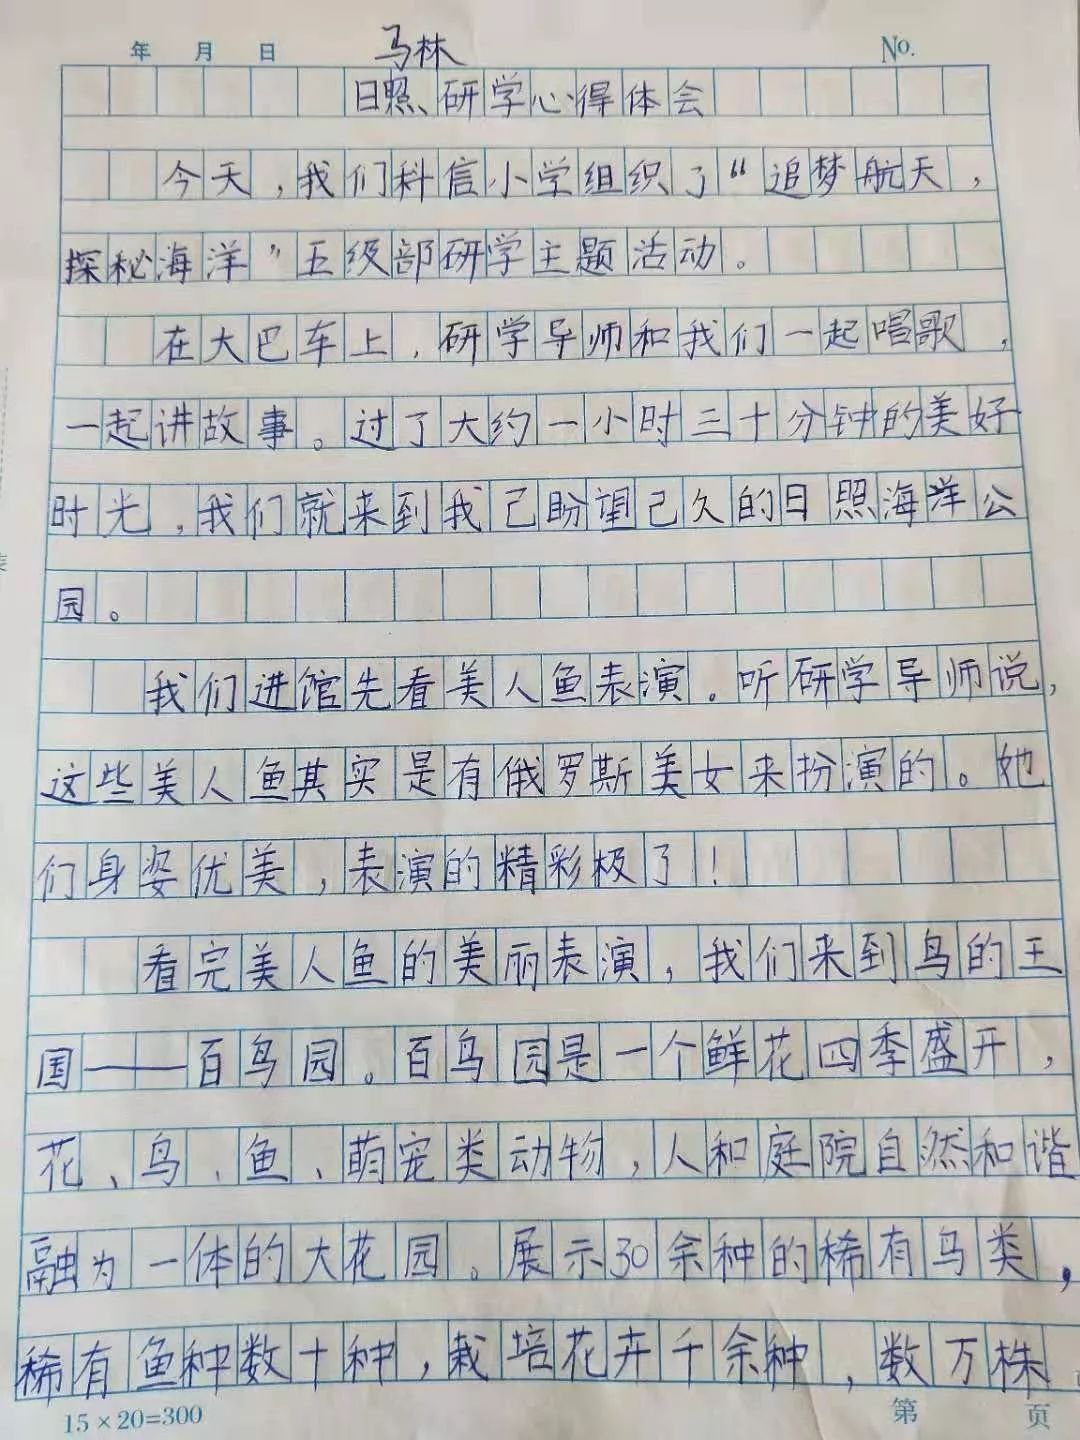 年 月 日 马林 No.
日照、研学心得体会
今天，我们科信小学组织了“追梦航天，
探秘海洋”五级部研学主题活动。
在大巴车上，研学导师和我们一起唱歌，
一起讲故事。过了大约一小时三十分钟的美好
时光，我们就来到我己盼望己久的日照海洋公
园。
我们进馆先看美人鱼表演。听研学导师说，
这些美人鱼其实是有俄罗斯美女来扮演的。她
们身姿优美，表演的精彩极了！
看完美人鱼的美丽表演，我们来到鸟的王
国——百鸟园。百鸟园是一个鲜花四季盛开，
花、鸟、鱼、萌宠类动物，人和庭院自然和谐
融为一体的大花园。展示30余种的稀有鸟类，
稀有鱼种数十种，栽培花卉千余种，数万株
15×20=300 第 页